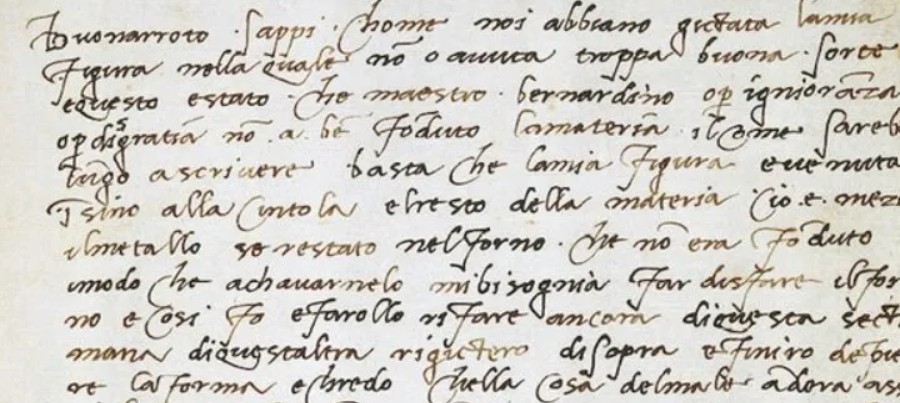 Buonarroto · sappi · chome noi abbiano gictata lamia
figura nella quale nō o auuta troppa buona · sorte
e questo estato · che maestro · bernardino · op ignioranza
op disgratia nō · a · bē fōduto lamateria · il chome sareb
lūgo a scrivere basta che lamia figura e uenuta
īsino alla cintola el resto della materia cio · e · mez
il metallo se restato nel forno · che nō era fōduto
imodo che a chauarnelo mi bisognia far disfare il for
no e cosi fo e farollo rifare ancora di questa secti
mana di quest altra rigictero di sopra e finiro de pie
re la forma e chredo chella cosa del male adora as